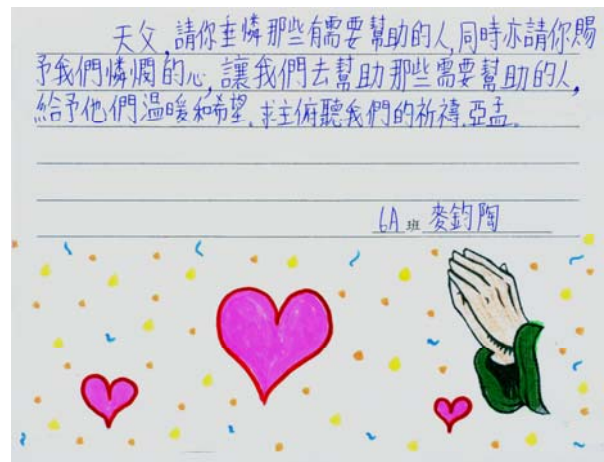 天父,請你垂憐那些有需要幫助的人,同時亦請你賜
予我們憐憫的心,讓我們去幫助那些需要幫助的人,
給予他們溫暖和希望。求主俯聽我們的祈禱。亞孟。
6A班 麥鈞陶